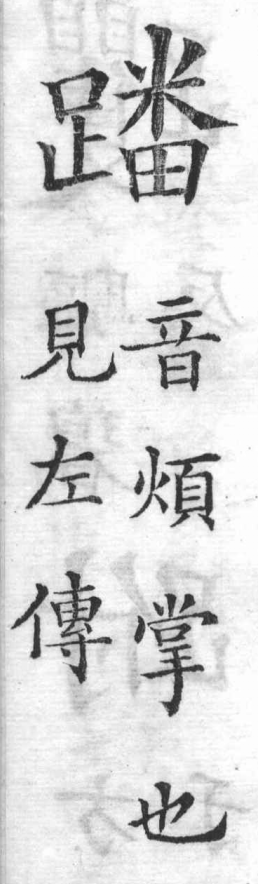 蹯
音煩掌也
見左傳